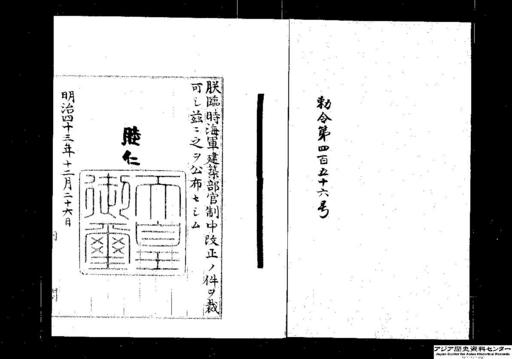 勅令第四百五十六号
朕臨時海軍建築部官制中改正ノ件ヲ裁
可シ茲ニ之ヲ公布セシム
睦仁
天皇
御璽
明治四十三年十二月二十六日
アジア歴史資料センター
Japan Center for Asian Historical Records